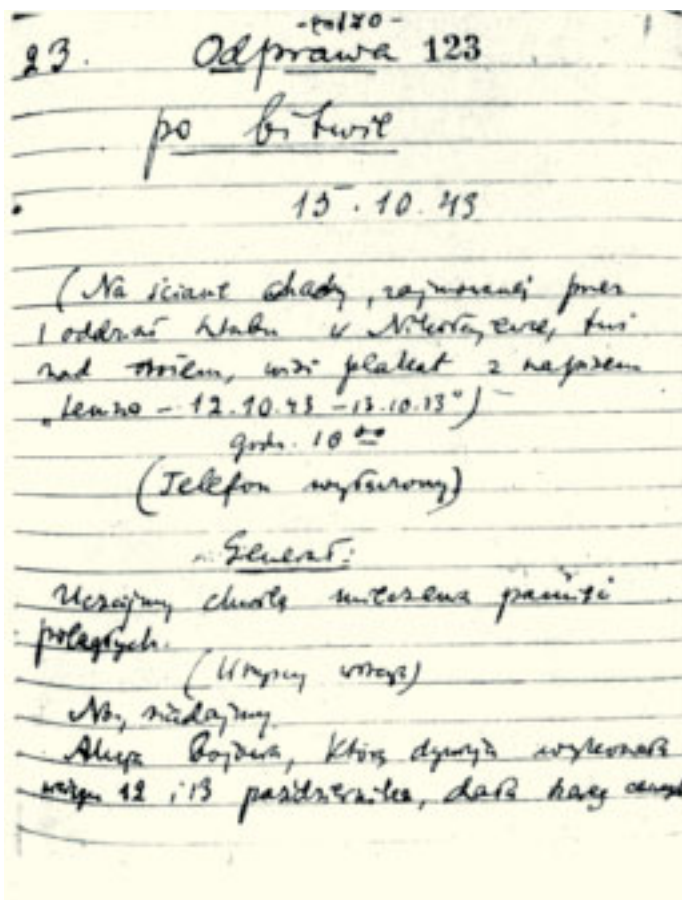 23. Odprawa 123
po bitwie
15.10.43
(Na ścianie chaty, zajmowanej przez
I oddział sztabu w Nikołajewce, tuż
nad stołem, wisi plakat z napisem
„Lenino – 12.10.43 – 13.10.13")
godz. 10 00
(Telefon wyłączony)
Generał:
Uczcijmy chwilą milczenia pamięć
poległych.
(Wszyscy wstają)
No, siadajmy
Akcja bojowa, którą dywizja wykonała
12 i 13 października, dała